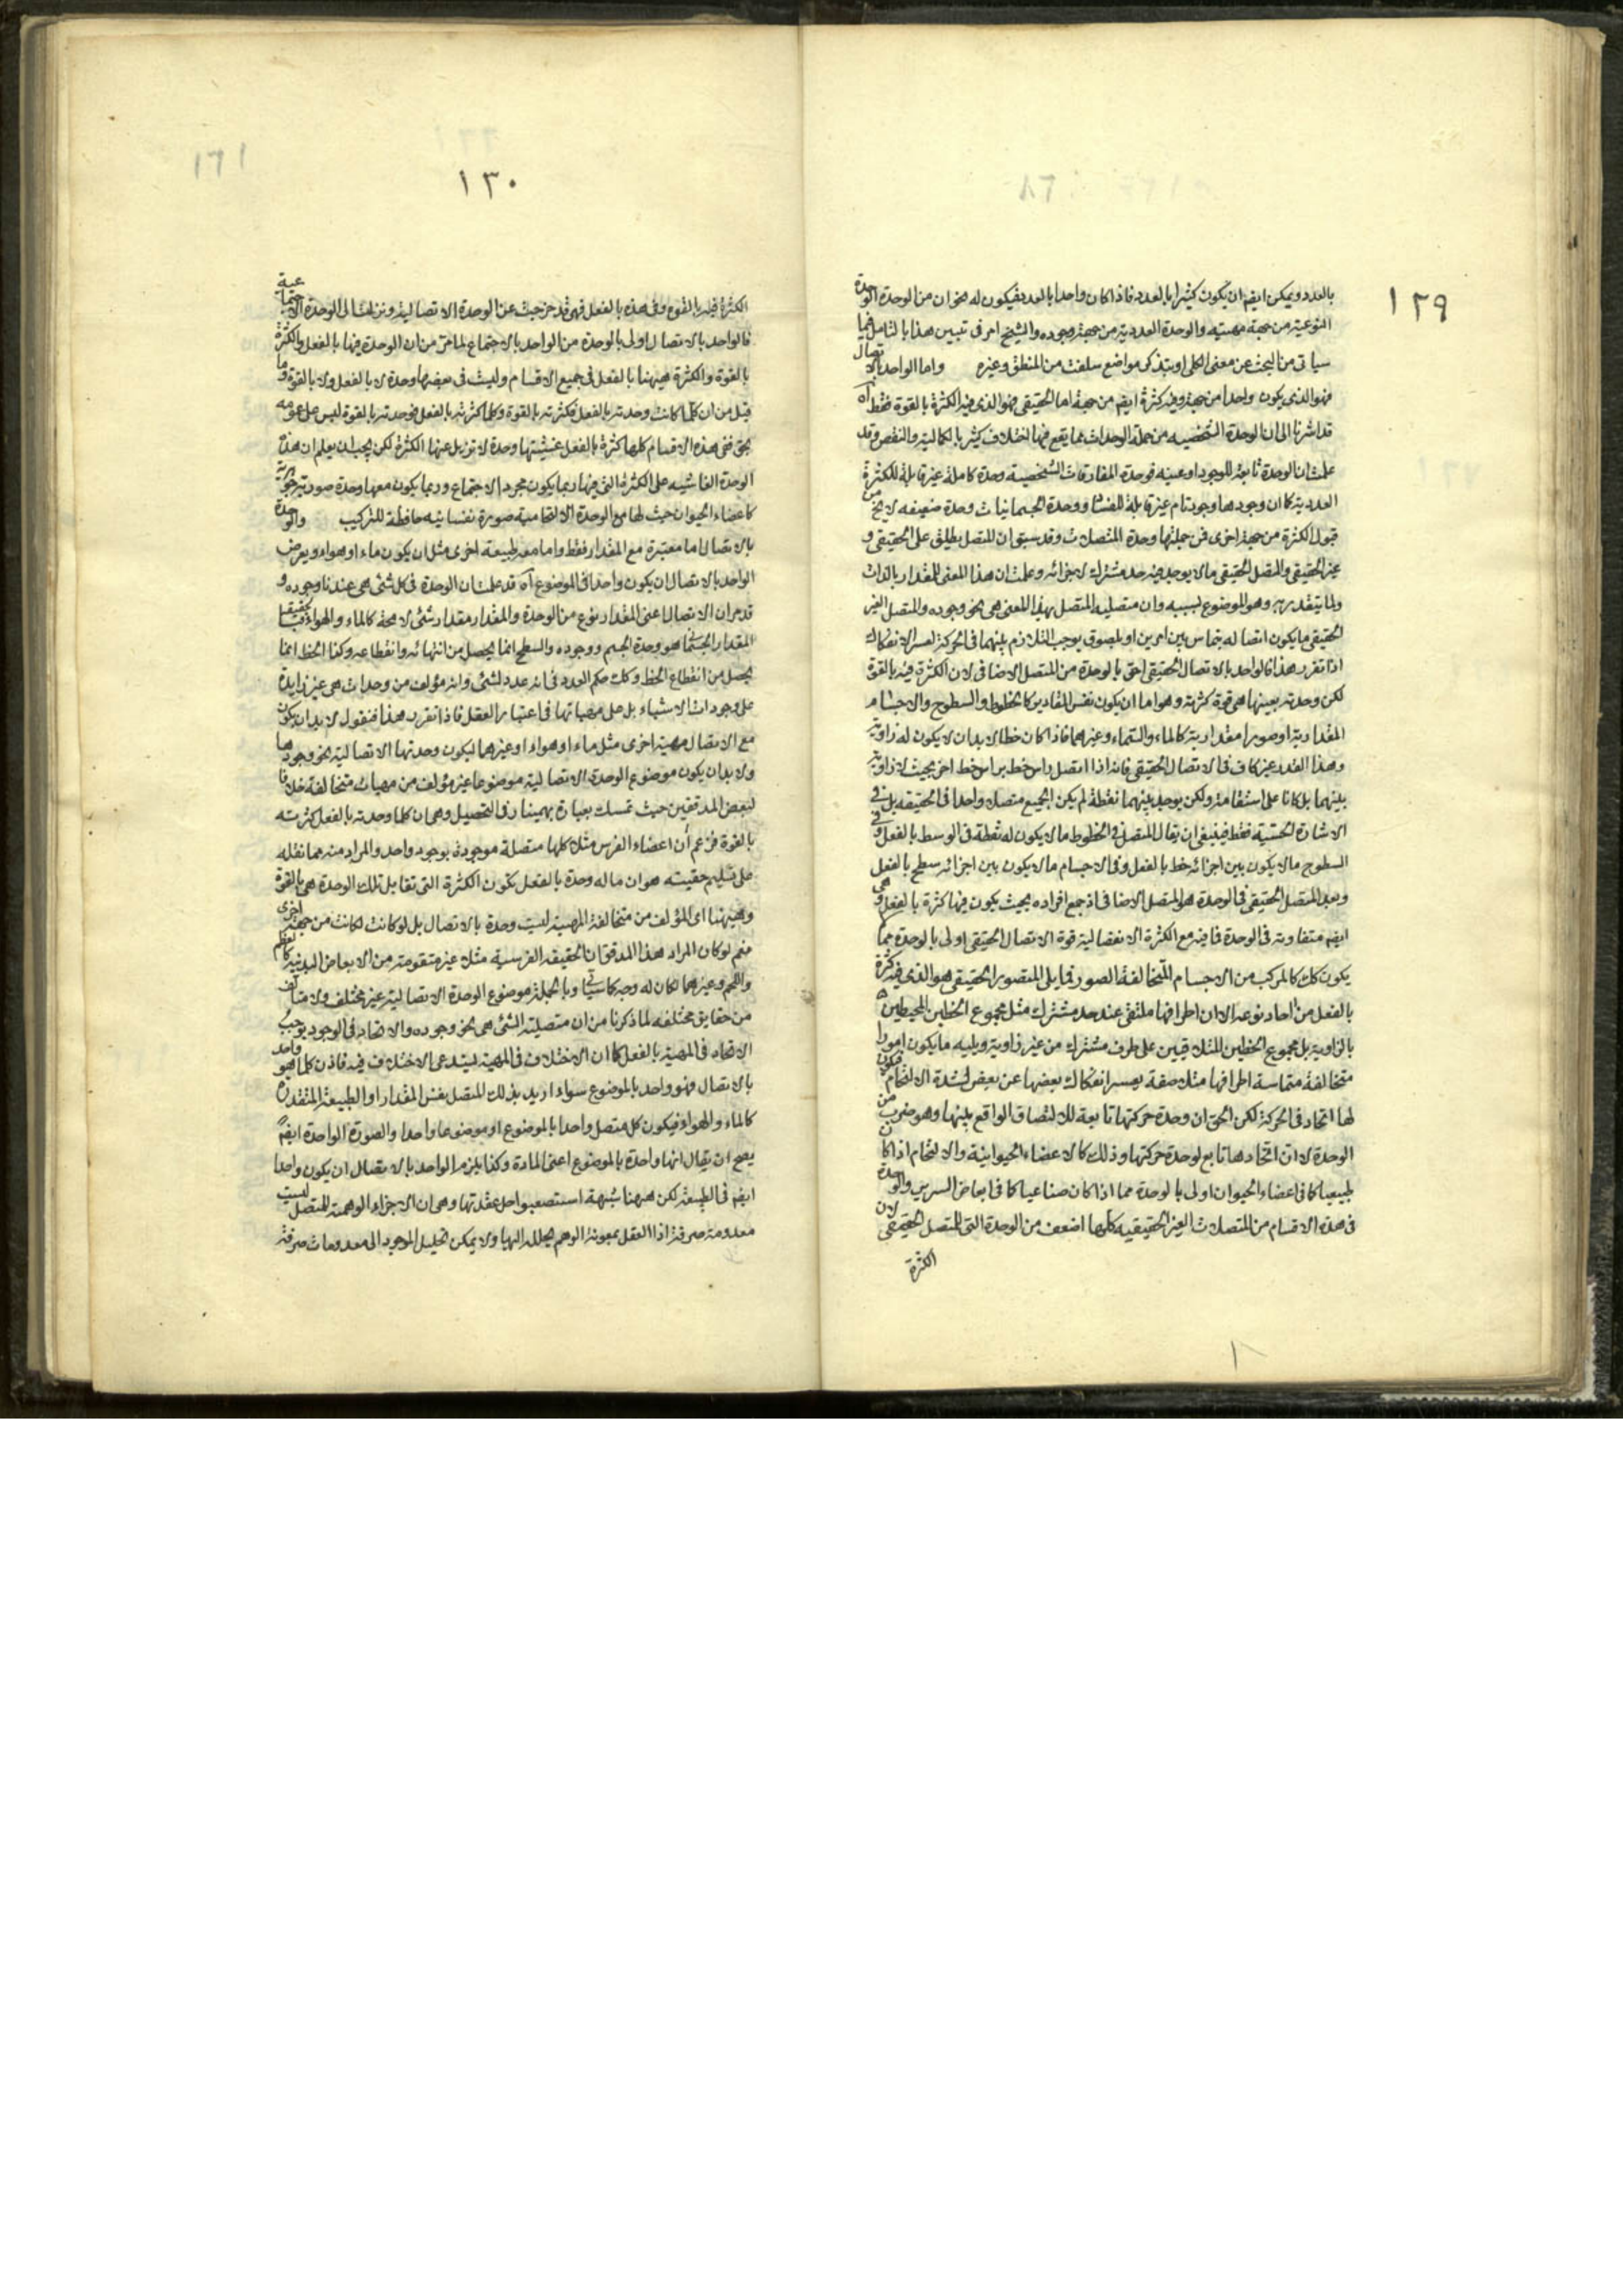 ١٢٩
بالعدد ويمكن ايضم ان يكون كثيرا بالعدد فاذا كان واحدا بالعدد فيكون له نحوان من الوحدة الوحدة
النوعية من جهة مهيته والوحدة العددية من جهة وجوده والشيخ امر فى تبيين هذا بالتامل فيما
سياتى من البحث عن معنى الكلى او بتذكر مواضع سلفت من المنطق وغيره واما الواحد بالاتصال
فهو الذى يكون واحدا من جهة وفيه كثرة ايضم من جهة اما الحقيقى فهو الذى فيه الكثرة بالقوة فقط آه
قد اشرنا الى ان الوحدة الشخصيه من جملة الوحدات مما يقع فيها اختلاف كثير بالكمالية والنقص وقد
علمت ان الوحدة تابعة للوجود او عينه فوحدة المفارقات الشخصية وحدة كاملة غير قابلة للكثرة
العددية كما ان وجودها وجود تام غير قابلة للفساد ووحدة الجسمانيات وحدة ضعيفه لايخ من
قبول الكثرة من جهة اخرى فمن جملتها وحدة المتصلات وقد سبق ان المتصل يطلق على الحقيقى و
غير الحقيقى والمتصل الحقيقى مالا يوجد فيه حد مشترك لاجزائه وعلمت ان هذا المعنى للمقدار بالذات
ولما يتقدر به وهو الموضوع لسببه وان متصلية المتصل بهذا المعنى هى نحو وجوده والمتصل الغير
الحقيقى ما يكون اتصاله بتماس بين امرين او بلصوق يوجب التلازم بينهما فى الحركة لعسر الانفكاك
اذا تقرر هذا فالواحد بالاتصال الحقيقى احق بالوحدة من المتصل الاضافى لان الكثرة فيه بالقوة
لكن وحدته بعينها هى قوة كثرته وهو اما ان يكون نفس المقادير كالخطوط والسطوح والاجسام
المقدارية او صورا مقدارية كالماء والسماء وغيرهما فاذا كان خطا لابد ان لا يكون له زاوية
وهذا القدر غير كاف فى الاتصال الحقيقى فانه اذا اتصل راس خط براس خط اخر بحيث لا زاوية
بينهما بل كانا على استقامة ولكن يوجد بينهما نقطة لم يكن الجميع متصلا واحدا فى الحقيقه بل فى
الاشارة الحسية فقط فينبغى ان يقال المتصل فى الخطوط ما لا يكون له نقطة فى الوسط بالفعل وفى
السطوح مالا يكون بين اجزائه خط بالفعل وفى الاجسام مالا يكون بين اجزائه سطح بالفعل
وبعد المتصل الحقيقى فى الوحدة هو المتصل الاضافى اذ جمع افراده بحيث يكون فيها كثرة بالفعل وهى
ايضم متفاوته فى الوحدة فما فيه مع الكثرة الانفصالية قوة الاتصال الحقيقى اولى بالوحدة مما لم
يكون كك كالمركب من الاجسام المتخالفة الصور فما يلى المتصور الحقيقى هو الذى فيه كثرة
بالفعل من احاد نوعه الا ان اطرافها ملتقى عند حد مشترك مثل مجموع الخطين المحيطين
بالزاوية بل مجموع الخطين المتلاقيين على طرف مشترك من غير زاوية ويليه ما يكون امورا
متخالفة متماسة اطرافها متلاصقة يعسر انفكاك بعضها عن بعض لشدة الالتحام فيكون
لها اتحاد فى الحركة لكن الحق ان وحدة حركتها تابعة للالتصاق الواقع بينها وهو ضرب من
الوحدة لا ان اتحادها تابع لوحدة حركتها وذلك كالاعضاء الحيوانية والالتحام اذا كان
طبيعيا كما فى اعضاء الحيوان اولى بالوحدة مما اذا كان صناعيا كما فى ابعاض السرير والوحدة
فى هذه الاقسام من المتصلات الغير الحقيقيه كلها اضعف من الوحدة التى للمتصل الحقيقى لان
الكثرة
١٣٠
الكثرة فيه بالقوة وفى هذه بالفعل فهى قد خرجت عن الوحدة الاتصالية ونزلت الى الوحدة الاجتماعية
فالواحد بالاتصال اولى بالوحدة من الواحد بالاجتماع لما مر من ان الوحدة فيها بالفعل والكثرة
بالقوة والكثرة هيهنا بالفعل فى جميع الاقسام وليث فى بعضها وحدة لا بالفعل ولا بالقوة وما
قيل من ان كلما كانت وحدته بالفعل فكثرته بالقوة وكلما كثرته بالفعل فوحدته بالقوة ليس على عمومه
بحق ففى هذه الاقسام كلها كثرة بالفعل غشيتها وحدة لا تزيل عنها الكثرة لكن يجب ان يعلم ان هذه
الوحدة الغاشيه على الكثرة التى فيها ربما يكون مجرد الاجتماع وربما يكون معها وحدة صورية جوهرية
كاعضاء الحيوان حيث لها مع الوحدة الالتحامية صورة نفسانيه حافظة للتركيب والوحدة
بالاتصال اما معتبرة مع المقدار فقط واما مع طبيعه اخرى مثل ان يكون ماء او هواء ويعرض
الواحد بالاتصال ان يكون واحدا فى الموضوع آه قد علمت ان الوحدة فى كل شئ هى عندنا وجوده و
قد مر ان الاتصال اعنى المقدار نوع من الوحدة والمقدار مقدار شئ لا محة كالماء والهواء
المقدار الجسمى هو وحدة الجسم ووجوده والسطح انما يحصل من انتهائه وانقطاعه وكذا الخط انما
يحصل من انقطاع الخط وكك حكم العدد فى انه عدد لشئ وانه مؤلف من وحدات هى غير زايدة
على وجودات الاشياء بل على مهياتها فى اعتبار العقل فاذا تقرر هذا فنقول لابد ان يكون
مع الاتصال مهية اخرى مثل ماء او هواء او غيرهما ليكون وحدتها الاتصالية نحو وجودها
ولابد ان يكون موضوع الوحدة الاتصالية موضوعا غير مؤلف من مهيات متخالفة خلافا
لبعض المدققين حيث تمسك بعبارة بهمنيار فى التحصيل وهى ان كلما وحدته بالفعل كثرته
بالقوة فزعم ان اعضاء الفرس مثلا كلها متصلة موجودة بوجود واحد والمراد منه مما نقله
على تسليم حقيته هو ان ما له وحدة بالفعل تكون الكثرة التى تقابل تلك الوحدة هى بالقوة
وهيهنا اى المؤلف من متخالفة المهية ليست وحدة بالاتصال بل لو كانت لكانت من جهة اخرى
نعم لو كان المراد هذا المدقق ان الحقيقه الفرسية مثلا غير متقومة من الابعاض البدنية كالعظم
واللحم وغيرهما لكان له وجه كما سياتى وبالجملة موضوع الوحدة الاتصالية غير مختلف ولا متالف
من حقايق مختلفه لما ذكرنا من ان متصلية الشئ هى نحو وجوده والاتحاد فى الوجود يوجب
الاتحاد فى المهية بالفعل كما ان الاختلاف فى المهية يستدعى الاختلاف فيه فاذن كلما هو واحد
بالاتصال فهو واحد بالموضوع سواء اريد بذلك المتصل نفس المقدار او الطبيعة المتقدرة
كالماء والهواء فيكون كل متصل واحدا بالموضوع او موضوعا واحدا والصورة الواحدة ايضم
يصح ان يقال انها واحدة بالموضوع اعنى المادة وكذا يلزم الواحد بالاتصال ان يكون واحدا
ايضم فى الطبيعة لكن هيهنا شبهة استصعبوا حل عقدتها وهى ان الاجزاء الوهمية للمتصل ليست
معدومة صرفة اذ العقل بمعونة الوهم يحلله اليها ولا يمكن تحليل الموجود الى معدومات صرفة